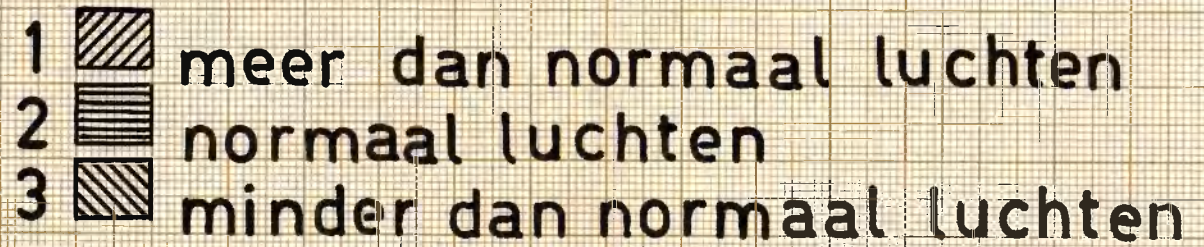 1 meer dan normaal luchten
2 normaal luchten
3 minder dan normaal luchten